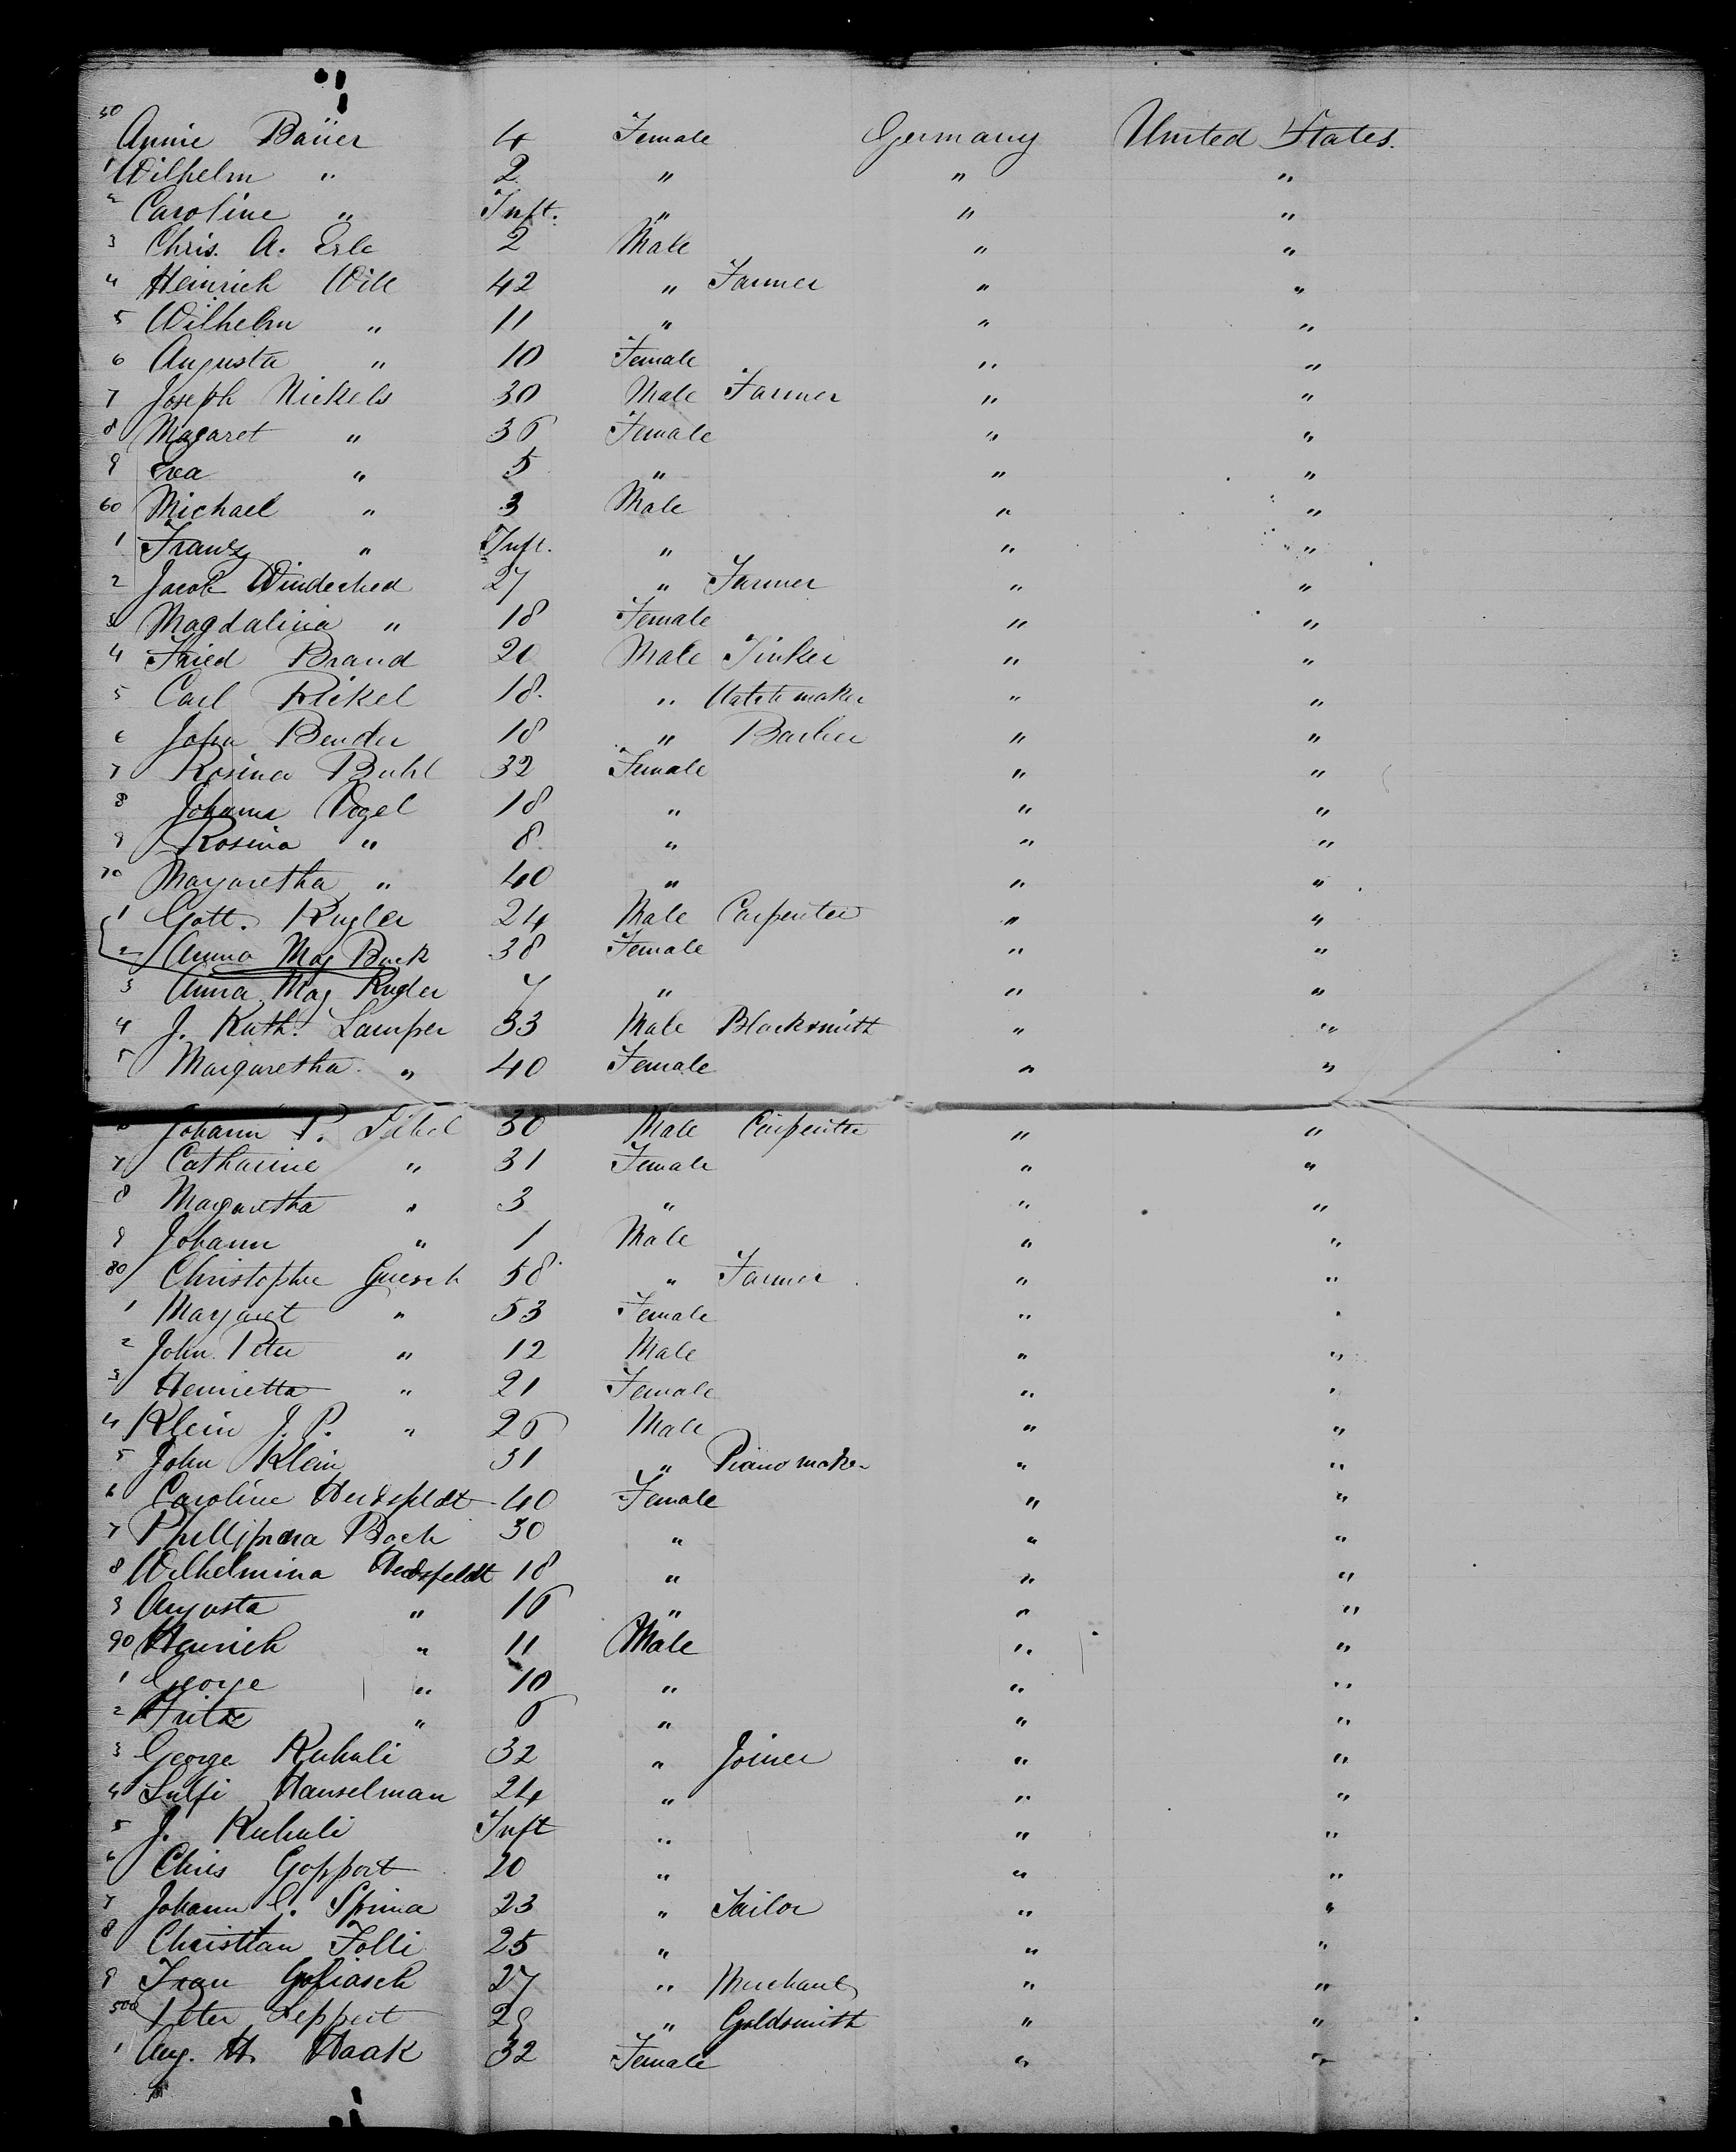 50 Annie Baüer 4 Female Germany United States.
1 Wilhelm " 2 " " "
2 Caroline " Inft. " " "
3 Chris. A. Erle 2 Male " "
4 Heinrich Will 42 " Farmer " "
5 Wilhelm " 11 " " "
6 Augusta " 10 Female " "
7 Joseph Nickels 30 Male Farmer " "
8 Magaret " 36 Female " "
9 Eva " 5 " " "
60 Michael " 3 Male " "
1 Franz " Inft. " " "
2 Jacob 27 " Farmer " "
3 Magdalina " 18 Female " "
4 Fried Brand 20 Male Tinker " "
5 Carl Rickel 18. " Watchmaker " "
6 John Bender 18 " Barber " "
7 Rosina Buhl 32 Female " "
8 Johanna Vogel 18 " " "
9 Rosina " 8 " " "
70 Margaretha " 40 " " "
1 Gott. Kugler 24 Male Carpenter " "
2 Anna Mag Buck 38 Female " "
3 Anna Mag Kugler 7 " " "
4 J. Kath. Lamper 33 Male Blacksmith " "
5 Margaretha " 40 Female " "
6 Johann P. 30 Male Carpenter " "
7 Catharine " 31 Female " "
8 Margaretha " 3 " " "
9 Johann " 1 Male " "
80 Christophe Guesch 58 " Farmer " "
1 Margaret " 53 Female " "
2 John Peter " 12 Male " "
3 Henrietta " 21 Female " "
4 Klein J. P. " 26 Male " "
5 John Klein 31 " Piano maker " "
6 Caroline 40 Female " "
7 Phillipina Bach 30 " " "
8 Wilhelmina 18 " " "
9 Augusta " 16 " " "
90 Heinrich " 11 Male " "
1 George " 10 " " "
2 Fritz " 6 " " "
3 George Kuhuli 32 " Joiner " "
4 Hanselman 24 " " "
5 J. Kuhuli Inft " " "
6 Chris Goppert 20 " " "
7 Johann C. Sprina 23 " Tailor " "
8 Christian Folli 25 " " "
9 27 " Merchant " "
500 Peter Leppert 29 " Goldsmith " "
1 Aug. H. Haak 32 Female " "